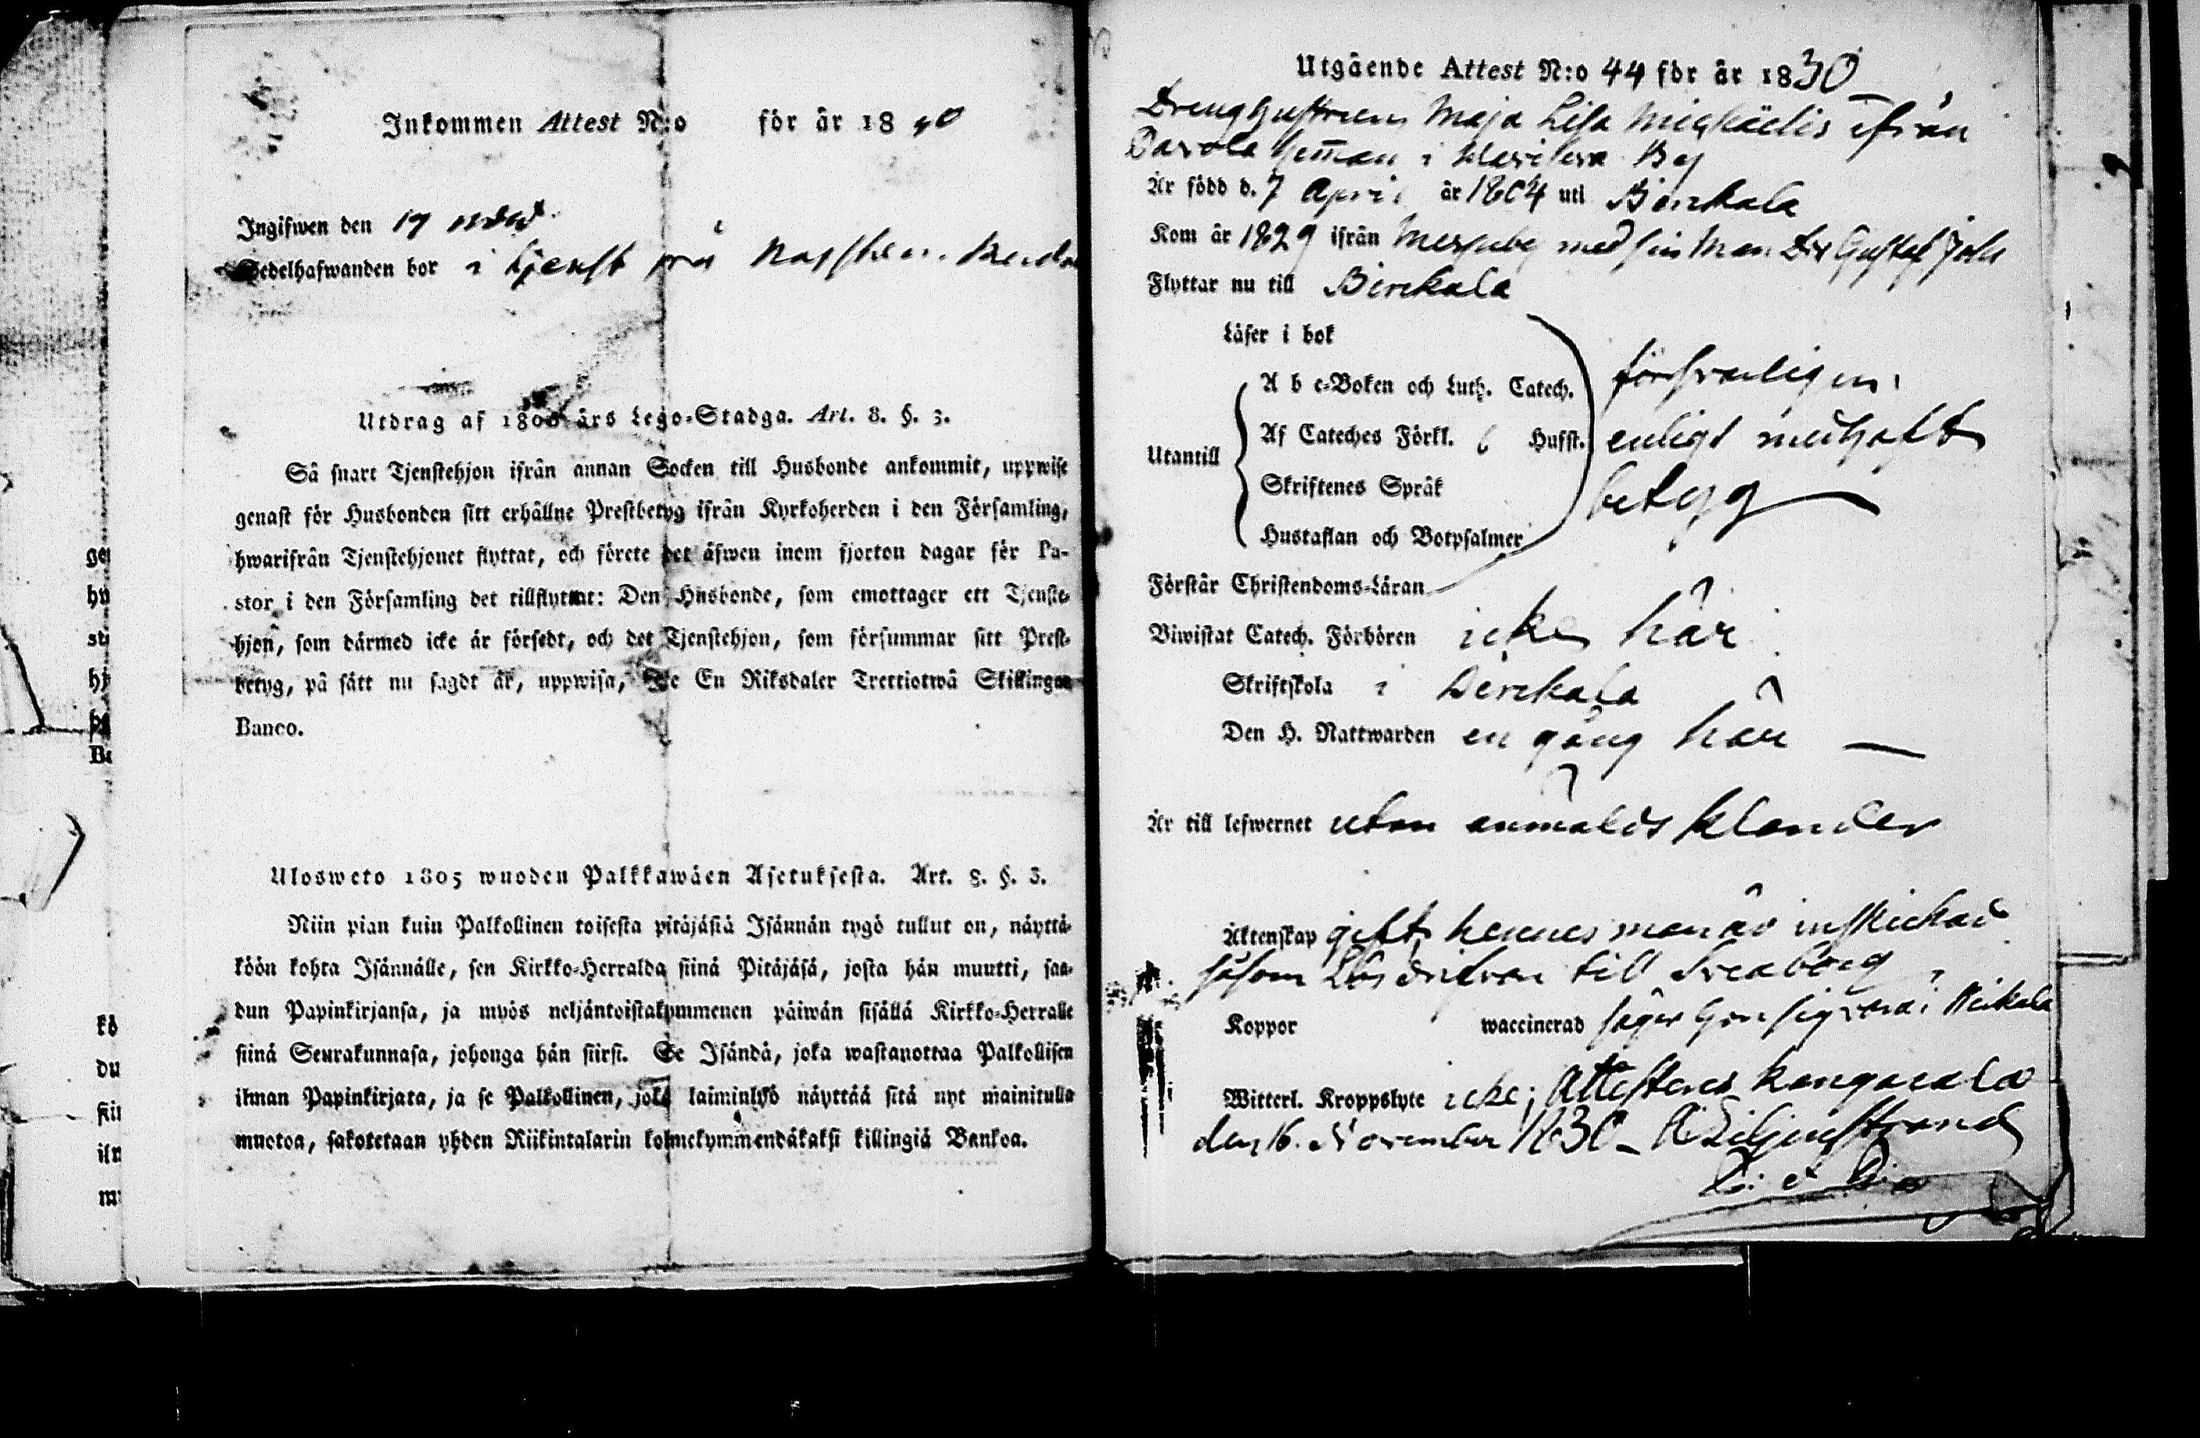 Inkommen Attest N:o för år 18
Ingifwen den 19
Sedelhafwanden bor i tjenst
Utdrag af 1805 års Lego-Stadga. Art. 8. §. 3.
Så snart Tjenstehjon ifrån annan Socken till Husbonde ankommit, uppwise
genast för Husbonden sitt erhållne Prestbetyg ifrån Kyrkoherden i den Församling,
hwarifrån Tjenstehjonet flyttat, och förete det äfwen inom fjorton dagar för Pa-
stor i den Församling det tillflyttat: Den Husbonde, som emottager ett Tjenste-
hjon, som därmed icke är försedt, och det Tjenstehjon, som försummar sitt Prest-
betyg, på sätt nu sagdt är, uppwisa, En Riksdaler Trettiotwå Skillingar
Banco.
Ulosweto 1805 wuoden Palkkawäen Asetuksesta. Art. 8. §. 3.
Niin pian kuin Palkollinen toisesta pitäjästä Isännän tygö tullut on, näyttä-
köön kohta Isännälle, sen Kirkko-Herralda siinä Pitäjäsä, josta hän muutti, saa-
dun Papinkirjansa, ja myös neljäntoistakymmenen päiwän sisällä Kirkko-Herralle
siinä Seurakunnasa, johonga hän siirsi. Se Isändä, joka wastanottaa Palkollisen
ilman Papinkirjata, ja se Palkollinen, joka laiminlyö näyttää sitä nyt mainitulla
muotoa, sakotetaan yhden Riikintalarin kolmekymmendäkaksi killingiä Bankoa.
Utgående Attest N:o 44 för år 1830
Drenghustrun Maja Lisa Michäelis ifrån
By
Är född d. 7 April år 1804 uti Birckala
Kom år 1829 ifrån Messuby med sin Man Dr Gustaf Joh
Flyttar nu till Birckala
Läser i bok
Utantill
A b c-Boken och Luth. Catech.
Af Cateches Förkl. Husst.
Skriftenes Språk
Hustaflan och Botpsalmer
försvarligen
enligt medhaft
betyg
Förstår Christendoms-Läran
Biwistat Catech. Förhören icke här
Skriftskola i Birckala
Den H. Nattwarden en gång här
Är till lefwernet utan anmäldt klander
Äktenskap gift, hennes man är inskickad
såsom Lösdrifvare till Sveaborg
Koppor waccinerad säger hon sig vara i Birkala
Witterl. Kroppslyte icke; Attesteras Kangasala
den 16. November 1830 - A Liljenstrand